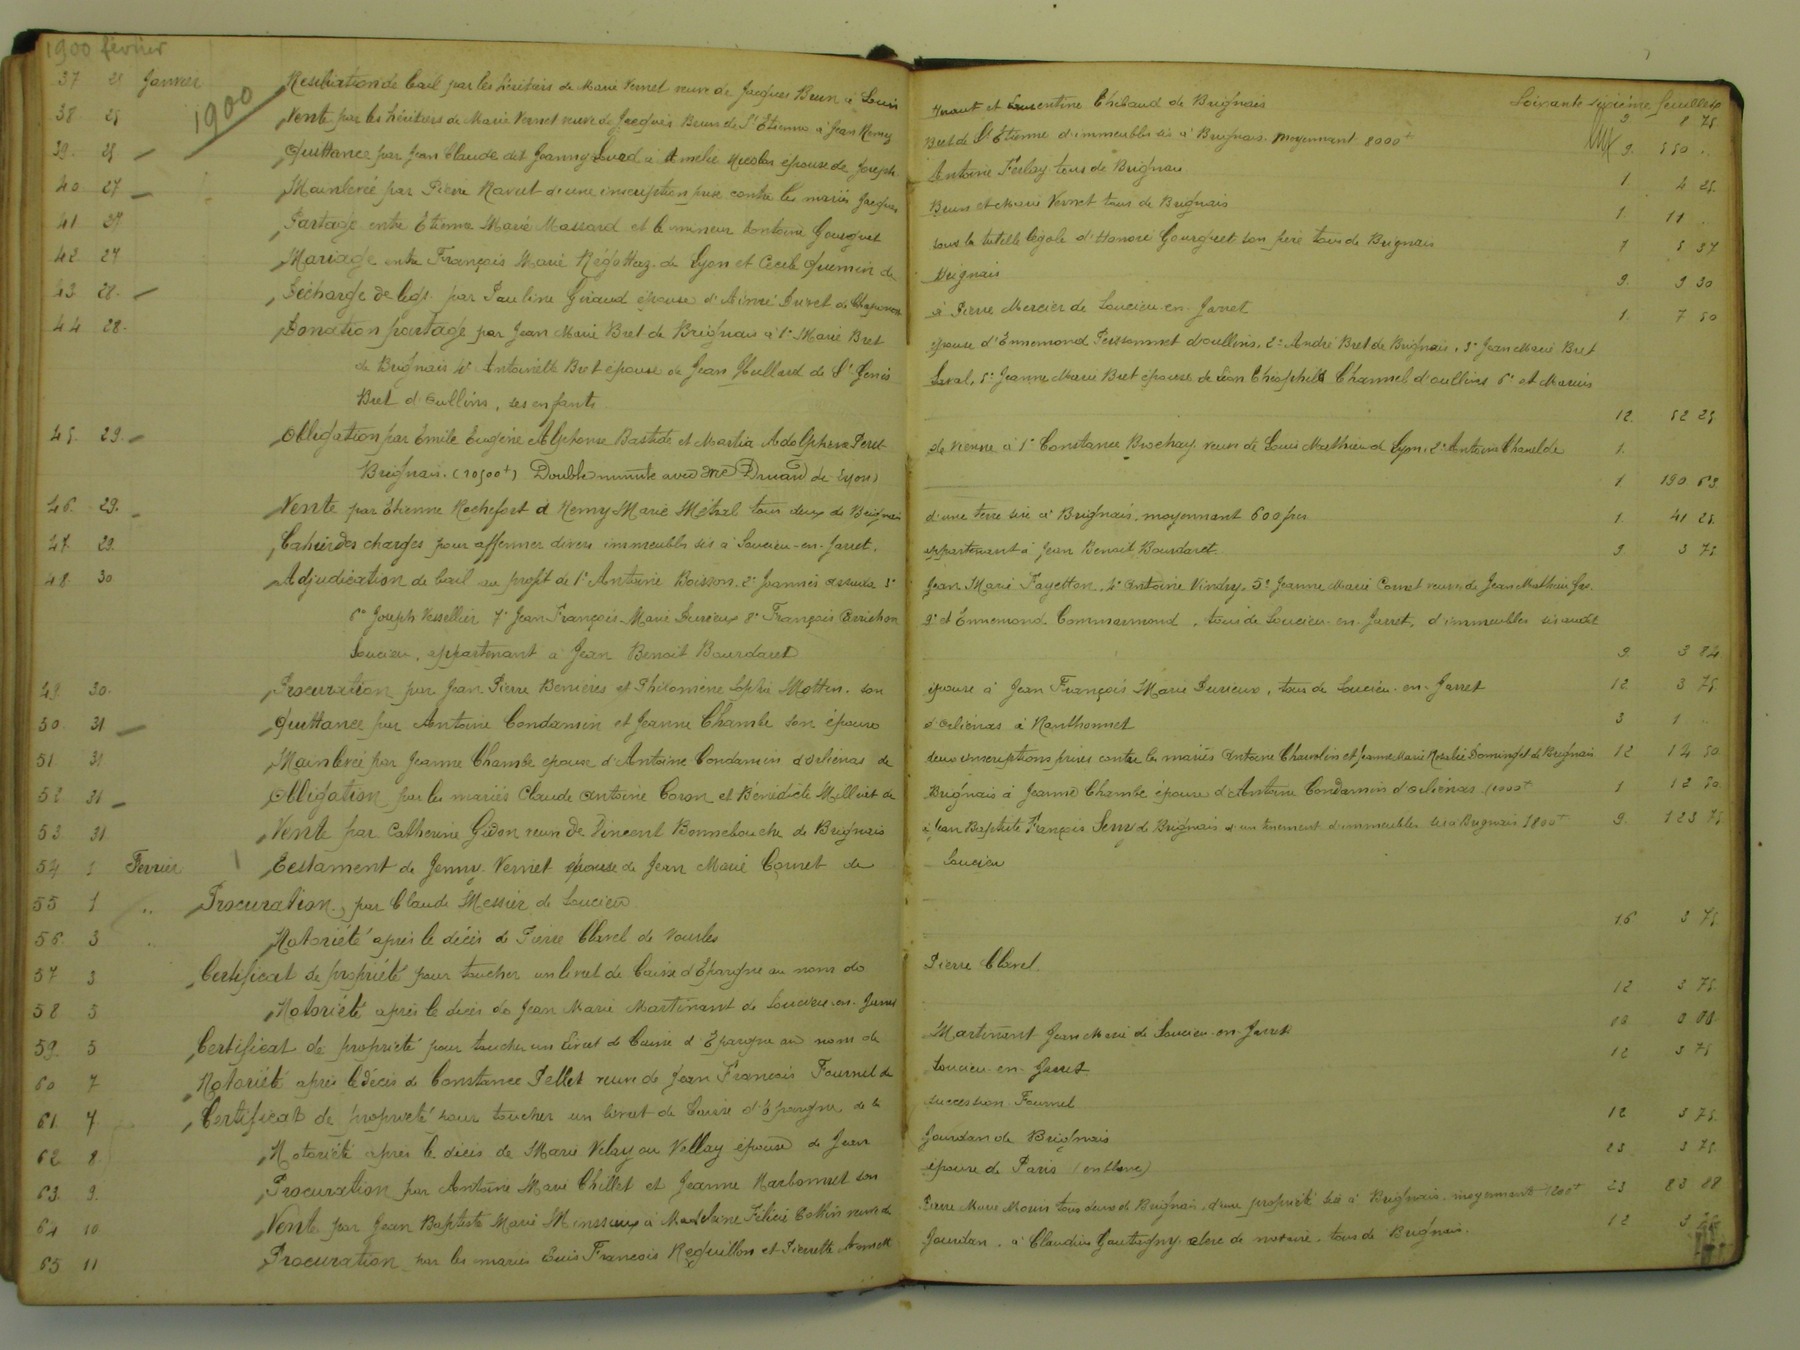 1900 février
Soixante sixième feuillet
1900
37 25 Janvier Résiliation de bail par les héritiers de Marie Vernet veuve de Jacques Brun à Louis
et Laurentine Thibaud de Brignais 9 8 75
38 25 Vente par les héritiers de Marie Vernet veuve de Jacques Brun de St Etienne à Jean Remy
Bret de St Etienne d'immeubles sis à Brignais moyennant 8000f 9. 550 ..
39. 25 Quittance par Jean Claude dit Joanny à Amélie épouse de Joseph
Antoine Ferlay tous de Brignais 1 4 25.
40. 27 Mainlevée par Pierre Ravut d'une inscription prise contre les mariés Jacques
Brun et Marie Vernet tous de Brignais 1 11 .
41 27 Partage entre Etienne Marie Massard et le mineur Antoine Gourguet
sous la tutelle légale d'Honoré Gourguet son père tous de Brignais 1 5 37
42 27 Mariage entre François Marie de Lyon et Cécile Quemin de
Brignais 9. 9 30
43 28. Décharge de legs par Pauline Giraud épouse d'Aimé Duret de Chaponost
à Pierre Mercier de Soucieu-en-Jarret 1. 7 50
44 28. Donation partage par Jean Marie Bret de Brignais à 1° Marie Bret
épouse d'Ennemond Poissonnet d'oullins, 2° André Bret de Brignais, 3° Jean Marie Bret
de Brignais 4° Antoinette Bret épouse de Jean de St Genis
Laval, 5° Jeanne Marie Bret épouse de Léon Théophile Charmel d'oullins 6° et Marius
Bret d'oullins, ses enfants 12. 52 25
45. 29. Obligation par Emile Eugène Alphonse Bastide et Martia Adolphine Peret
de Vienne à 1° Constance Brochay veuve de Louis Mathieu de Lyon, 2° Antoine de 1.
Brignais. (10500f) Double minute avec Me Druard de Lyon 1. 190 63.
46. 29. Vente par Etienne Rochefort à Remy Marie Métral tous deux de Brignais
d'une terre sise à Brignais, moyennant 600 frs 1. 41 25.
47. 29. Cahier des charges pour affermer divers immeubles sis à Soucieu-en-Jarret.
appartenant à Jean Benoit Bourdaret. 9. 3 75
48. 30 Adjudication de bail au profit de 1° Antoine Boisson. 2° Joannès 3°
Jean Marie Fayetton, 4° Antoine Vindry, 5° Jeanne Marie Cornet veuve de Jean Mathieu
6° Joseph Vessellier 7° Jean François Marie Durieux 8° François
9° et Ennemond Commarmond, tous de Soucieu-en-Jarret, d'immeubles sis audit
Soucieu, appartenant à Jean Benoit Bourdaret 9. 3 84
49. 30. Procuration par Jean Pierre Benières et Philomène Sophie Motten. son
épouse à Jean François Marie Durieux, tous de Soucieu-en-Jarret 12 3 75
50. 31 Quittance par Antoine Condamin et Jeanne Chambe son épouse
d'orliénas à Ranthonnet 3 1 ..
51 31 Mainlevée par Jeanne Chambe épouse d'Antoine Condamin d'orliénas de
deux inscriptions prises contre les mariés Antoine et Jeanne Marie Rosalie de Brignais 12 14 50
52 31 Obligation par les mariés Claude Antoine Coron et Bénédicte de
Brignais à Jeanne Chambe épouse d'Antoine Condamin d'orliénas. 1000f 1 12 50.
53. 31. Vente par Catherine Gidon veuve de Vincent Bonnebouche de Brignais
à Jean Baptiste François Serre de Brignais d'un tènement d'immeubles sis à Brignais 1800f 9. 123 75
54 1 Février Testament de Jenny Vernet épouse de Jean Marie Cornet de
Soucieu
55 1 .. Procuration par Claude Messier de Soucieu 16 3 75.
56. 3 .. Notoriété après le décès de Pierre Clavel de Vourles
57 3 Certificat de propriété pour toucher un livret de Caisse d'Epargne au nom de
Pierre Clavel. 12 3 75.
58 5 Notoriété après le décès de Jean Marie Martinant de Soucieu-en-Jarret
59. 5 Certificat de propriété pour toucher un livret de Caisse d'Epargne au nom de
Martinant Jean Marie de Soucieu-en-Jarret 12 3 75
60 7 Notoriété après le décès de Constance Pellet veuve de Jean François Fournel de
Soucieu-en-Jarret
61. 7. Certificat de propriété pour toucher un livret de Caisse d'Epargne de la
succession Fournel 12 3 75.
62 8. Notoriété après le décès de Marie Velay ou Vellay épouse de Jean
Jourdan de Brignais 23. 3 75.
63. 9. Procuration par Antoine Marie Chillet et Jeanne Narbonnet son
épouse de Paris (en blanc)
64 10 Vente par Jean Baptiste Marie à Madeleine Félicie Collin veuve de
Pierre Marie Morin tous deux de Brignais, d'une propriété sise à Brignais. moyennant 1200f 23 83 88
65 11 Procuration par les mariés Louis François Reguillon et Pierrette
Jourdan. à Claudius Gautigny clerc de notaire. tous de Brignais. 12 3